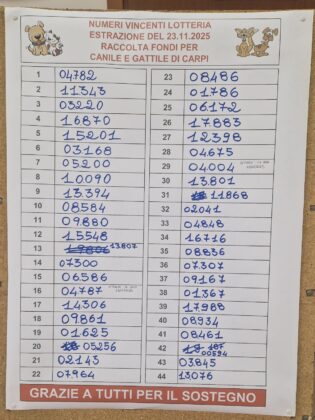 NUMERI VINCENTI LOTTERIA
ESTRAZIONE DEL 23.11.2025
RACCOLTA FONDI PER
CANILE E GATTILE DI CARPI
1 04782
2 11343
3 03220
4 16870
5 15201
6 03168
7 05200
8 10090
9 13394
10 08584
11 09880
12 15548
13 13807
14 07300
15 06586
16 04787
17 14306
18 09861
19 01625
20 05256
21 02143
22 07964
23 08486
24 01786
25 06172
26 17883
27 12398
28 04675
29 04004
30 13801
31 11868
32 02041
33 04848
34 16716
35 08836
36 07307
37 09167
38 01367
39 17988
40 08934
41 08461
42 00594
43 03845
44 13076
GRAZIE A TUTTI PER IL SOSTEGNO